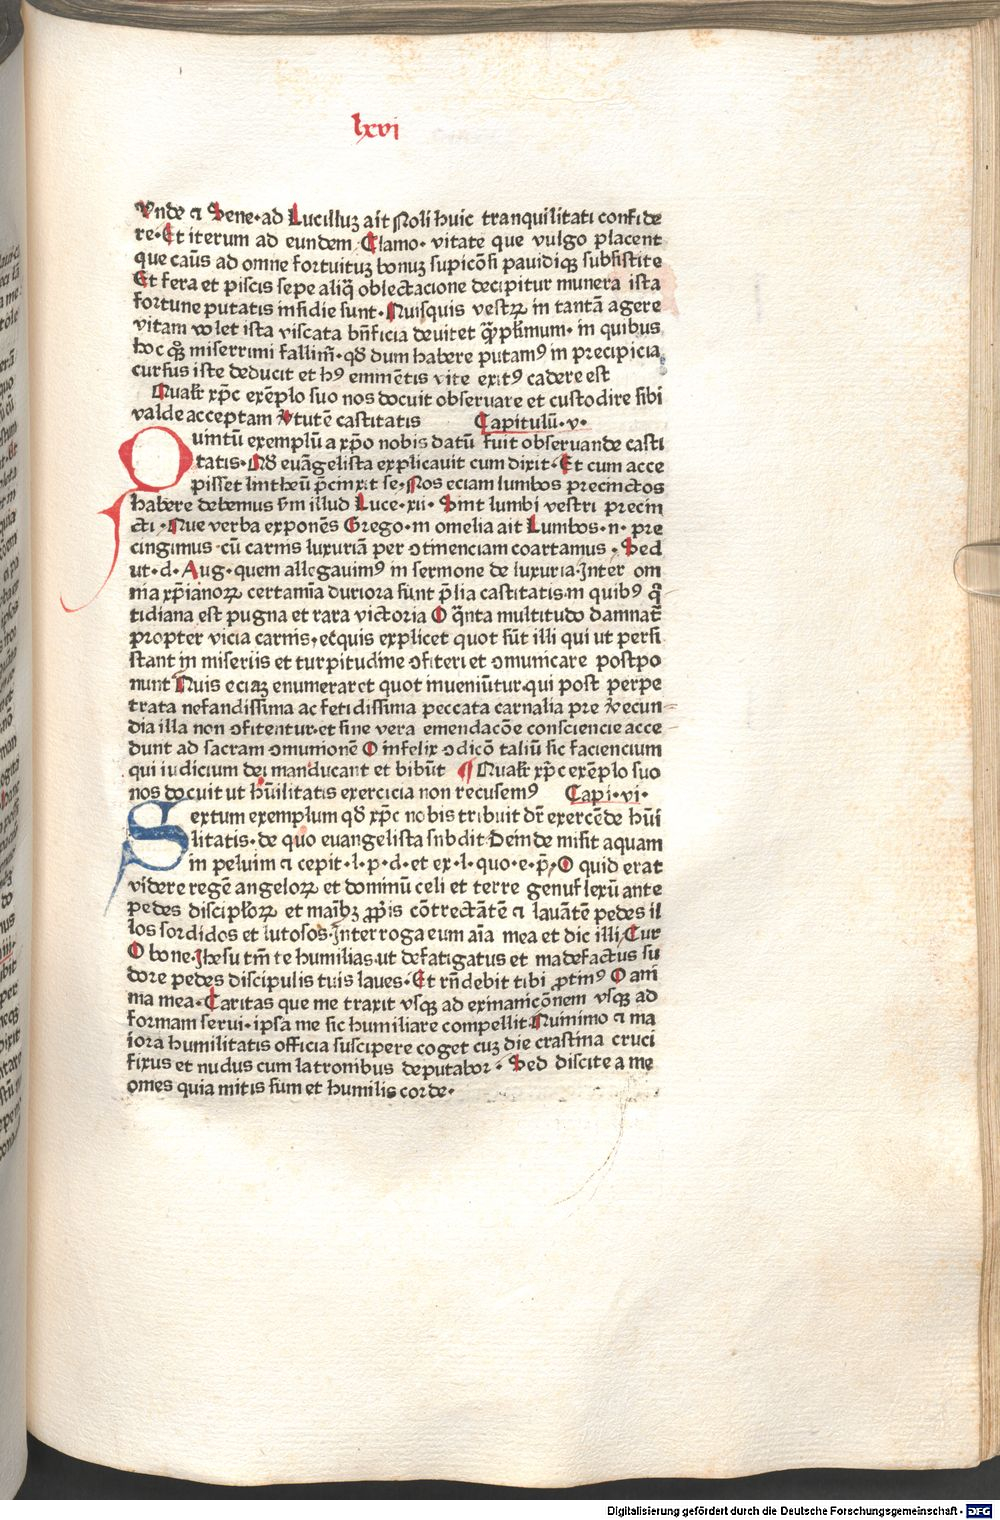 lxvi
Vnde ⁊ Sene·ad Lucilluʒ ait Noli huic tranquilitati confide
re·Et iterum ad eundem Clamo· vitate que vulgo placent
que caūs ad omne fortuituʒ bonuʒ supicōsi pavidiqʒ subsistite
Et fera et piscis sepe aliq̄ oblectacione decipitur munera ista
fortune putatis insidie sunt· Quisquis vestrꝝ in tantā agere
vitam volet ista viscata bn̄ficia devitet q̄ꝫ pl̄imum· in quibus
hoc qꝫ miserrimi fallim̄·qd̄ dum habere putamꝰ in precipicia
cursus iste deducit et hꝰ emmētis vite exitꝰ cadere est
Qualr̄ xp̄c exēplo suo nos docuit observare et custodire sibi
valde acceptam v̄tutē castitatis Capitulū·v·
Quintū exemplū a xp̄o nobis datū fuit observande casti
tatis·Qd̄ euāgelista explicavit cum dixit·Et cum acce
pisset lintheū p̄cinxit se·Nos eciam lumbos precinctos
habere debemus s̄m illud Luce·xii· Sint lumbi vestri precin
cti·Que verba exponēs Grego·in omelia ait Lumbos·n·pre
cingimus cū carnis luxuriā per ↄtinenciam coartamus·Sed
ut·d·Aug·quem allegavimꝰ in sermone de luxuria·Inter om
nia xp̄ianorꝝ certamīa duriora sunt p̄lia castitatis·in quibꝰ q̄
tidiana est pugna et rara victoria O q̄nta multitudo damnat̄
propter vicia carnis, ecquis explicet quot sūt illi qui ut persi
stant in miseriis et turpitudine ↄfiteri et ↄmunicare postpo
nunt Quis eciaʒ enumeraret quot inveniūtur·qui post perpe
trata nefandissima ac fetidissima peccata carnalia pre v̄ecun
dia illa non ↄfitentur·et sine vera emendacōe consciencie acce
dunt ad sacram ↄmunionē O infelix ↄdicō taliū sic faciencium
qui iudicium dei manducant et bibūt ¶ Qualr̄ xp̄c exēplo suo
nos docuit ut hūilitatis exercicia non recusemꝰ Capi·vi·
Sextum exemplum qd̄ xp̄c nobis tribuit dr̄ exercēde hūi
litatis·de quo euangelista subdit Deinde misit aquam
in peluim ⁊ cepit·l·p·d·et ex·l·quo·e·p̄·O quid erat
videre regē angelorꝝ et dominū celi et terre genuflexū ante
pedes discipl̄orꝝ et maībʒ p̄p̄is cōtrectātē ⁊ lavātē pedes il
los sordidos et lutosos·Interroga eum aīa mea et dic illi Cur
O bone·Ihesu tm̄ te humilias·ut defatigatus et madefactus su
dore pedes discipulis tuis laves·Et rn̄debit tibi ꝓtinꝰ O ani
ma mea·Caritas que me traxit vsqʒ ad exinanicōnem vsqʒ ad
formam servi·ipsa me sic humiliare compellit·Quinimo ⁊ ma
iora humilitatis officia suscipere coget cuʒ die crastina cruci
fixus et nudus cum latronibus deputabor· Sed discite a me
omes quia mitis sum et humilis corde·
Digitalisierung gefördert durch die Deutsche Forschungsgemeinschaft - DFG